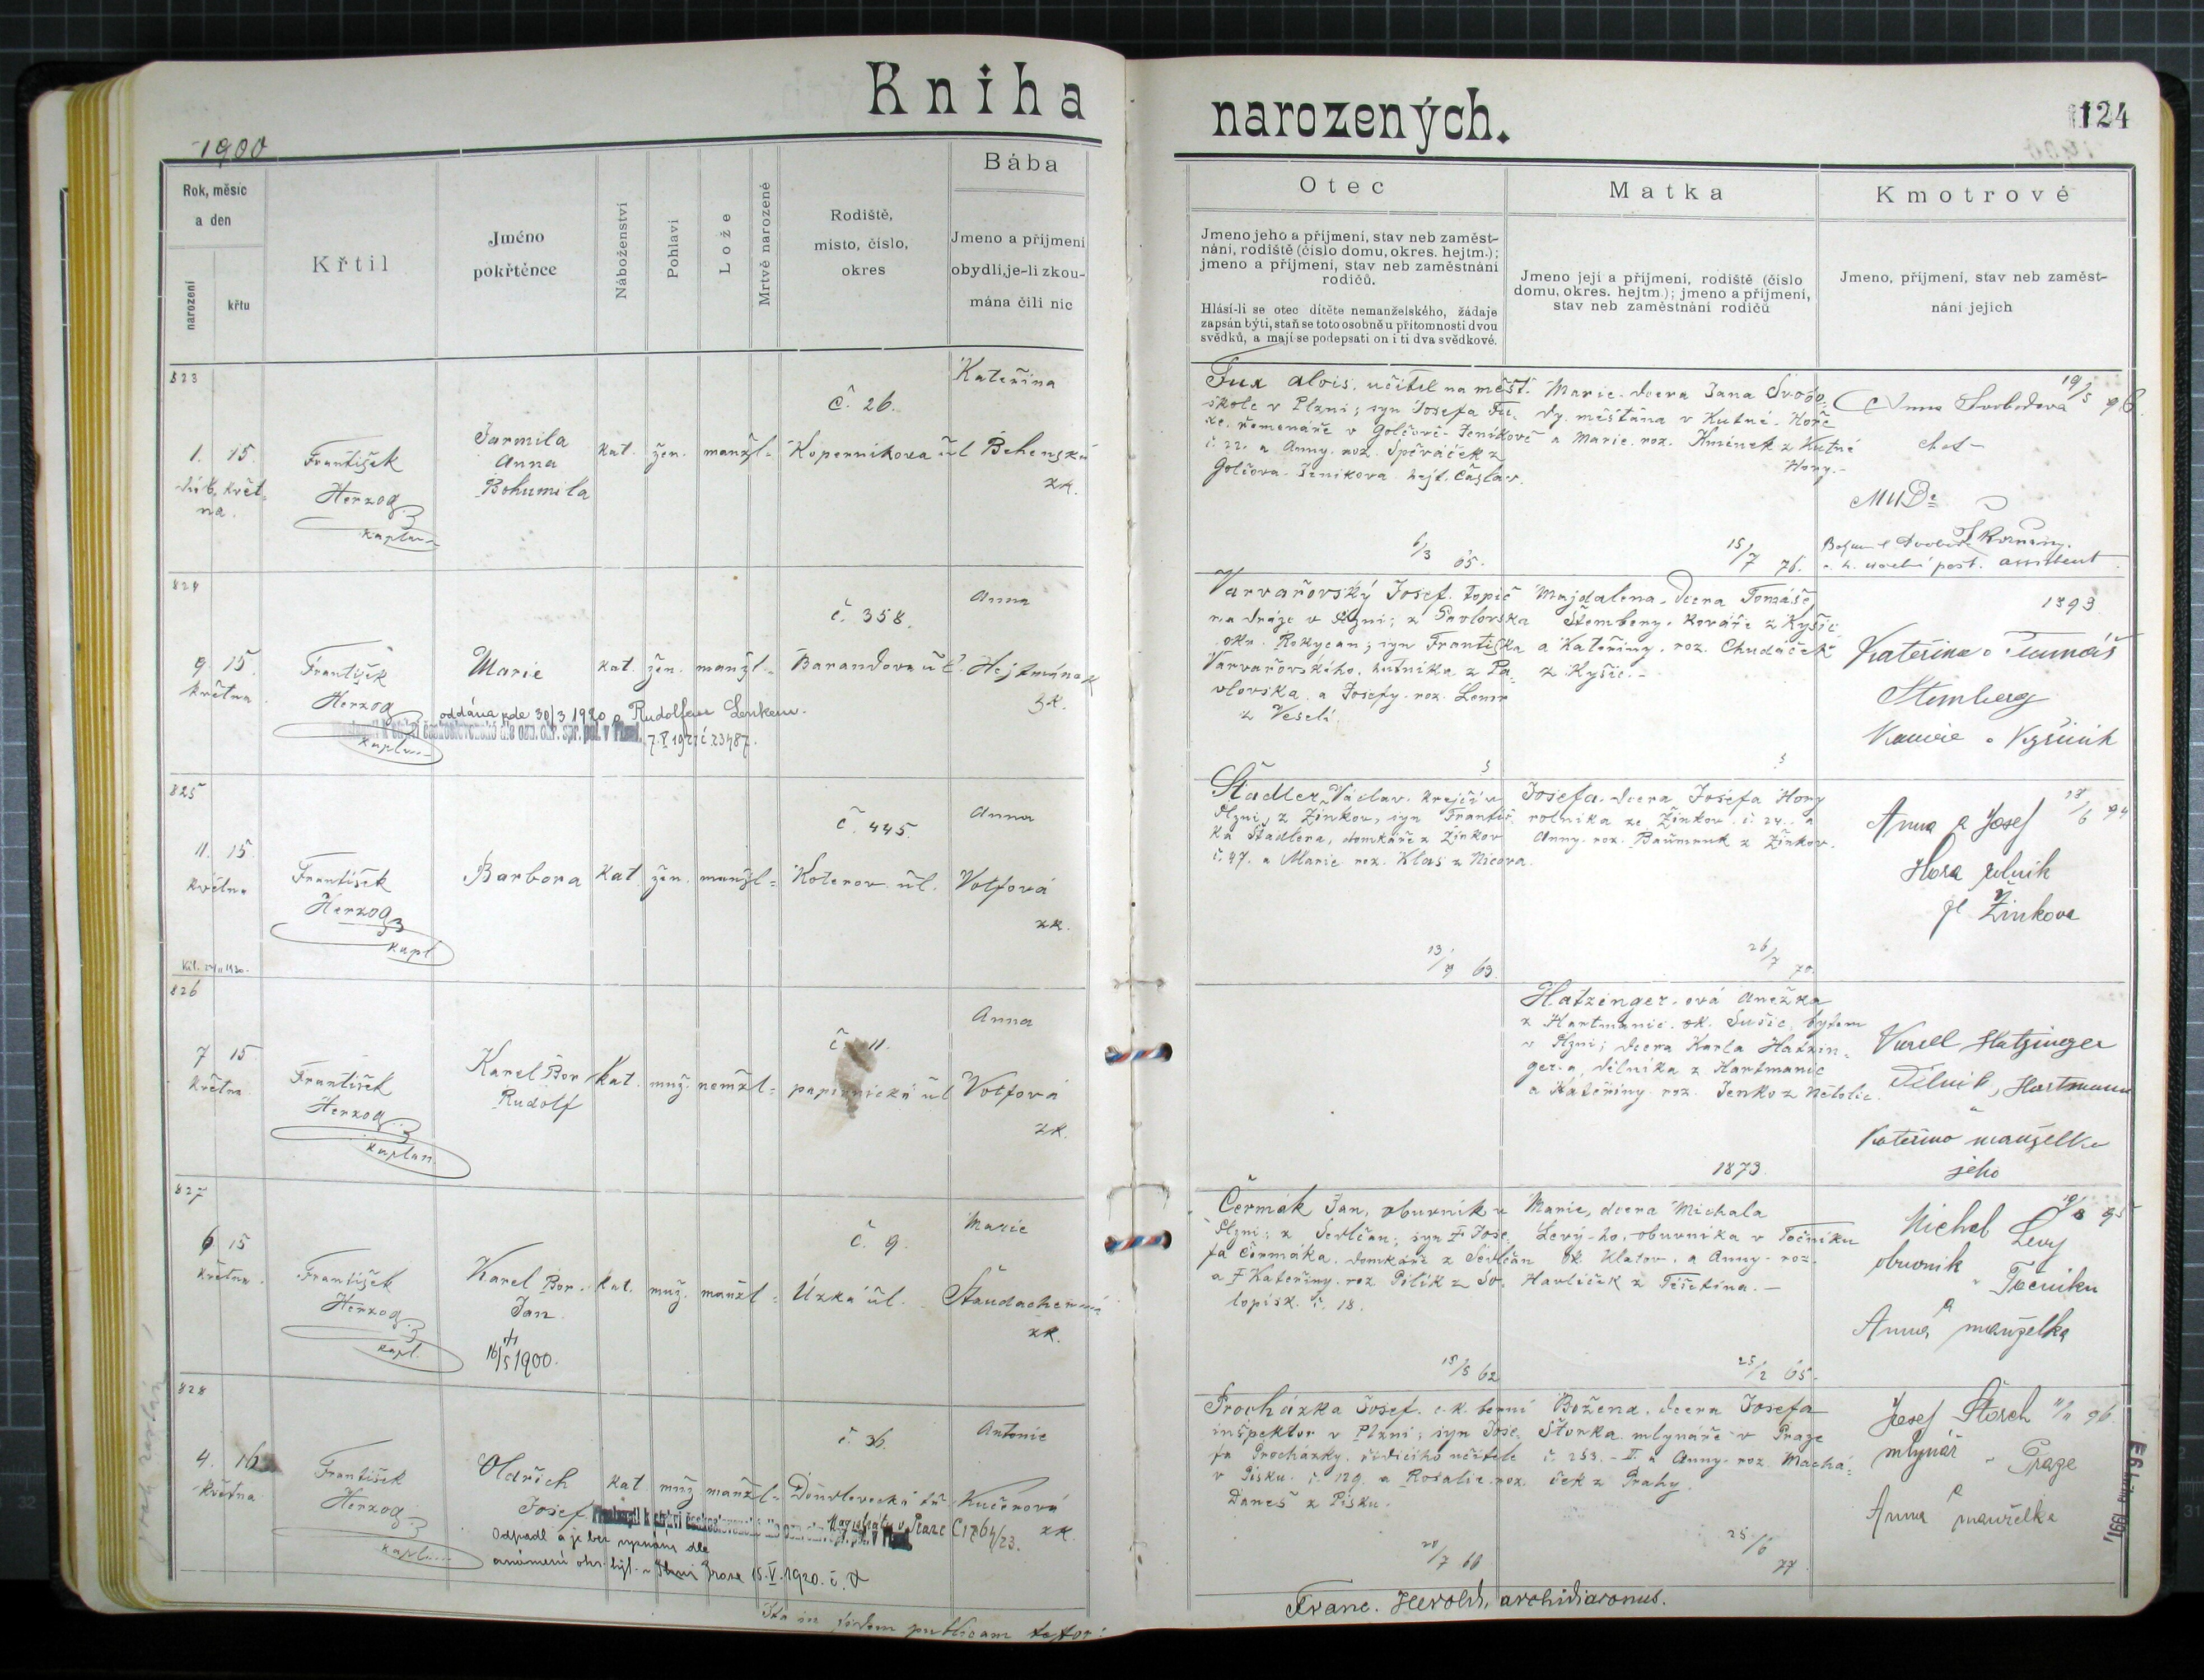 Kniha narozených.
124
1900
Rok, měsíc
a den
narození
křtu
Křtil
Jméno
pokřtěnce
Náboženství
Pohlaví
Lože
Mrtvě narozené
Rodiště,
místo, číslo,
okres
Bába
Jmeno a příjmení
obydlí, je-li zkou-
mána čili nic
Otec
Jmeno jeho a příjmení, stav neb zaměst-
nání, rodiště (číslo domu, okres. hejtm.);
jmeno a příjmení, stav neb zaměstnání
rodičů.
Hlásí-li se otec dítěte nemanželského, žádaje
zapsán býti, staň se toto osobně u přítomnosti dvou
svědků, a mají se podepsati on i ti dva svědkové.
Matka
Jmeno její a příjmení, rodiště (číslo
domu, okres. hejtm.); jmeno a příjmení,
stav neb zaměstnání rodičů
Kmotrové
Jmeno, příjmení, stav neb zaměst-
nání jejich
823
1. 15.
květ-
na.
František
Herzog
kaplan
Jarmila
Anna
Bohumila
kat. žen. manžl-
č. 26.
Kopernikova ul
Kateřina
Behenská
zk.
Fux Alois, učitel na měšť.
škole v Plzni; syn Josefa Fu-
xe, řemenáře v Golčově-Jeníkově
č. 22. a Anny roz. Spěváček z
Golčova-Jeníkova hejt. Čáslav.
6/3 65.
Marie, dcera Jana Svobo-
dy, měšťana v Kutné Hoře
a Marie roz. Kmínek z Kutné
Hory.-
15/7 76.
Anna Svobodová
MUDr
post. assistent
824
9. 15.
května
František
Herzog
kaplan
Marie
kat. žen. manžl-
oddána zde 30/3 1920 s Rudolfem Lenkem.
7.V 1921 č 23487.
č. 358.
Barandova ul.
Anna
Hejtmánek
zk.
Varvařovský Josef, topič
na dráze v Plzni; z Pavlovska
okr. Rokycan; syn Františka
Varvařovského, hutníka z Pa-
vlovska a Josefy roz. Lenr
z Veselí
Majdalena, dcera Tomáše
Štembery, kováře z Kyšic
a Kateřiny, roz. Chudáček
z Kyšic.-
1893
Kateřina a Tomáš
Stemberg
Kovář v Kyšicích
825
11. 15.
května
František
Herzog
kapl
Barbora
kat. žen. manžl-
č. 445.
Koterov. ul.
Anna
Votfová
zk.
Štadler Václav, krejčí v
Plzni, z Žinkov, syn Františ-
ka Štadlera, domkáře z Žinkov
č. 47. a Marie roz. Klas z Nicova.
13/9 63.
Josefa, dcera Josefa Hory
rolníka ze Žinkov č. 24. a
Anny roz. Baumruk z Žinkov.
26/7 70.
Anna a Josef
Hora rolník
ze Žinkova
826
7 15.
května
František
Herzog
kaplan.
Karel Bor
Rudolf
kat. muž. nemžl-
č. 11.
papírnická ul
Anna
Votfová
zk.
Hatzinger-ová Anežka
z Hartmanic ok. Sušic, bytem
v Plzni; dcera Karla Hatzin-
ger-a, dělníka z Hartmanic
a Kateřiny roz. Jenko z Netolic.
1873.
Karell Hatzinger
Dělník, Hartmann
a
Kateřina manželka
jeho
827
6 15
května
František
Herzog
kapl.
Karel Bor.
Jan
16/5 1900.
kat. muž. manžl-
č. 9.
Úzká ul.
Marie
Štaudacherová
zk.
Čermák Jan, obuvník v
Plzni; z Sedlčan; syn † Jose-
fa Čermáka, domkáře z Sedlčan
a † Kateřiny roz. Pilík z So-
lopisk. č. 18.
15/5 62
Marie, dcera Michala
Levý-ho, obuvníka v Točníku
ok. Klatov. a Anny roz.
Havlíček z Těšetina.-
25/2 65.
Michal Levý
obuvník
v Točníku
a
Anna manželka
828
4. 16
května
František
Herzog
kaplan
Oldřich
Josef
kat. muž. manžl-
Odpadl a je bez vyznání dle
15.V.1920.
Magistrátu v Praze
č. 36.
Doudlevecká tř
Antonie
Kučerová
zk.
Procházka Josef, c.k. berní
inspektor v Plzni; syn Jose-
fa Procházky, řídícího učitele
v Písku č. 129. a Rosalie roz.
Daneš z Písku.
Božena, dcera Josefa
Štorka mlynáře v Praze
č. 253.-I. a Anny roz. Machá-
ček z Prahy.
25/6 77.
Josef Štorch
mlynář v Praze
a
Anna manželka
Ita in fidem publicam testor:
Franc. Herold, archidiaconus.